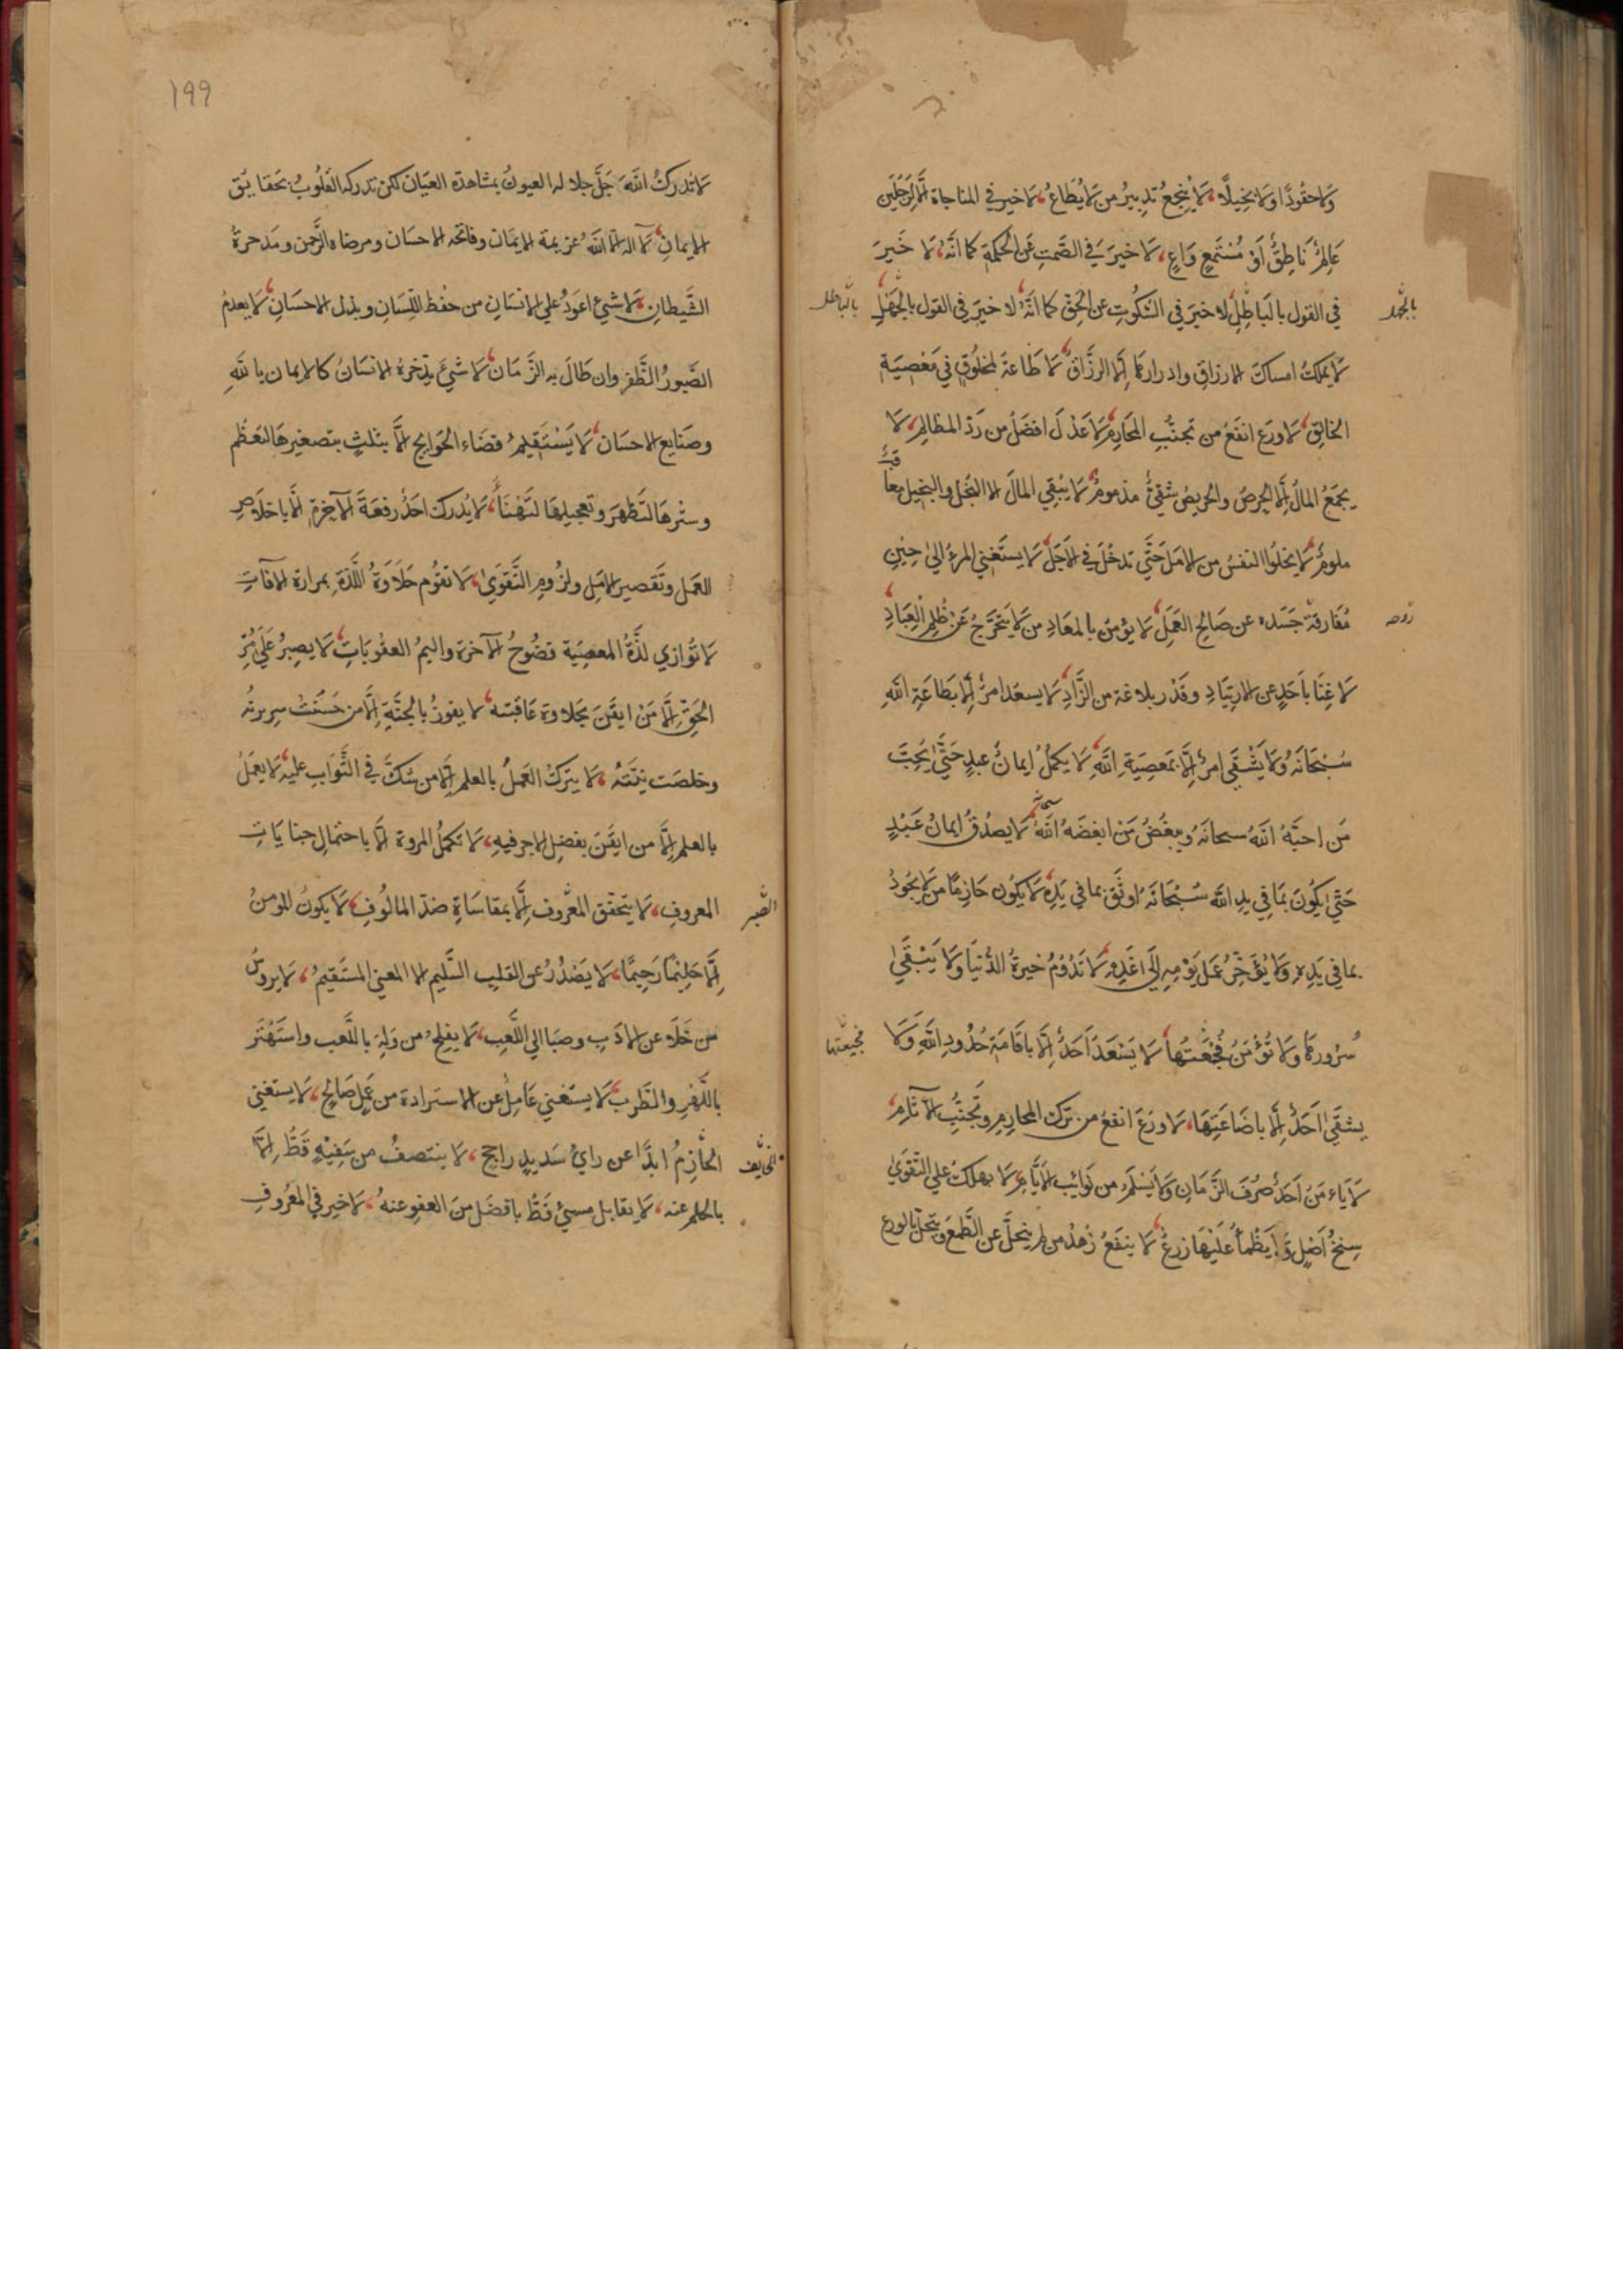 ولا حقودا ولا بخيلا، لا ينجع تدبير من لا يطاع، لا خير في المناجاة الا لرجلين
عالم ناطق أو مستمع واع، لا خير في الصمت عن الحكمة كما انه لا خير
في القول بالباطل، لا خير في السكوت عن الحق كما انه لا خير في القول بالجهل
بالجهل
بالباطل
لا يملك امساك الارزاق وادرارها إلا الرزاق، لا طاعة لمخلوق في معصية
الخالق، لا ورع انفع من تجنب المحارم، لا عدل افضل من رد المظالم، لا
يجمع المال إلا الحرص والحريص شقي مذموم، لا يبقي المال الا البخل والبخيل معا
ملوم، لا يخلوا النفس من الامل حتى تدخل في الاجل، لا يستغني المرء الى حين
مفارقة جسده عن صالح العمل، لا يؤمن بالمعاد من لا يتحرج عن ظلم العباد
روحه
لا غنا بأحد عن الارتياد وقدر بلاغة من الزاد، لا يسعد امرؤ إلا بطاعة الله
سبحانه ولا يشقى امرؤ إلا بمعصية الله، لا يكمل ايمان عبد حتى يحب
من احبه الله سبحانه ويبغض من ابغضه الله، لا يصدق ايمان عبد
حتى يكون بما في يد الله سبحانه اوثق بما في يده، لا يكون حازما من لا يجود
بما في يده ولا يؤخر عمل يومه إلى غده، لا تدوم خيرة الدنيا ولا يبقى
سرورها ولا تؤمن فجعتها، لا يسعد احد إلا باقامة حدود الله ولا
فجيعتها
يشقى احد إلا باضاعتها، لا ورع انفع من ترك المحارم وتجنب الآثام
لا يأمن احد صرف الزمان ولا يسلم من نوائب الايام، لا يهلك على التقوى
سنخ اصل ولا يظمأ عليها زرع، لا ينفع زهد من لم يتخل عن الطمع ويتحل بالورع
١٩٩
لا تدرك الله جل جلاله العيون بمشاهدة العيان لكن تدركه القلوب بحقايق
الإيمان، لآ اله الا الله عزيمة الايمان وفاتحة الاحسان ومرضاه الرحمن ومدحرة
الشيطان، لا شيء اعود على الانسان من حفظ اللسان وبذل الاحسان، لا يعدم
الصبور الظفر وان طال به الزمان، لا شيء يدخره الانسان كالايمان بالله
وصنايع الاحسان، لا يستقيم قضاء الحوايج الا بثلث بتصغيرها لتعظم
وسترها لتظهر وتعجيلها لتهنأ، لا يدرك احد رفعة الآخرة الا باخلاص
العمل وتقصير الامل ولزوم التقوى، لا تقوم حلاوة اللذة بمرارة الآفات
لا توازي لذة المعصية فضوح الآخرة واليم العقوبات، لا يصبر على مر
الحق إلا من ايقن بحلاوة عاقبته، لا يفوز بالجنة إلا من حسنت سريرته
وخلصت نيته، لا يترك العمل بالعلم إلا من شك في الثواب عليه، لا يعمل
بالعلم إلا من ايقن بفضل الاجر فيه، لا تكمل المروة الا باحتمال جنايات
المعروف، لا يتحقق المعروف إلا بمقاساة ضد المالوف، لا يكون المومن
الصبر
إلا حليما رحيما، لا يصدر عن القلب السليم الا المعنى المستقيم، لا يروس
من خلا عن الادب وصبا الى اللعب، لا يفلح من وله باللعب واستهتر
باللهو والطرب، لا يستغني عامل عن الاستزادة من عمل صالح، لا يستغني
الحازم ابدا عن راي سديد راجح، لا ينتصف من سفيه قط إلا
بالحلم عنه، لا يقابل مسيء قط بافضل من العفو عنه، لا خير في المعروف